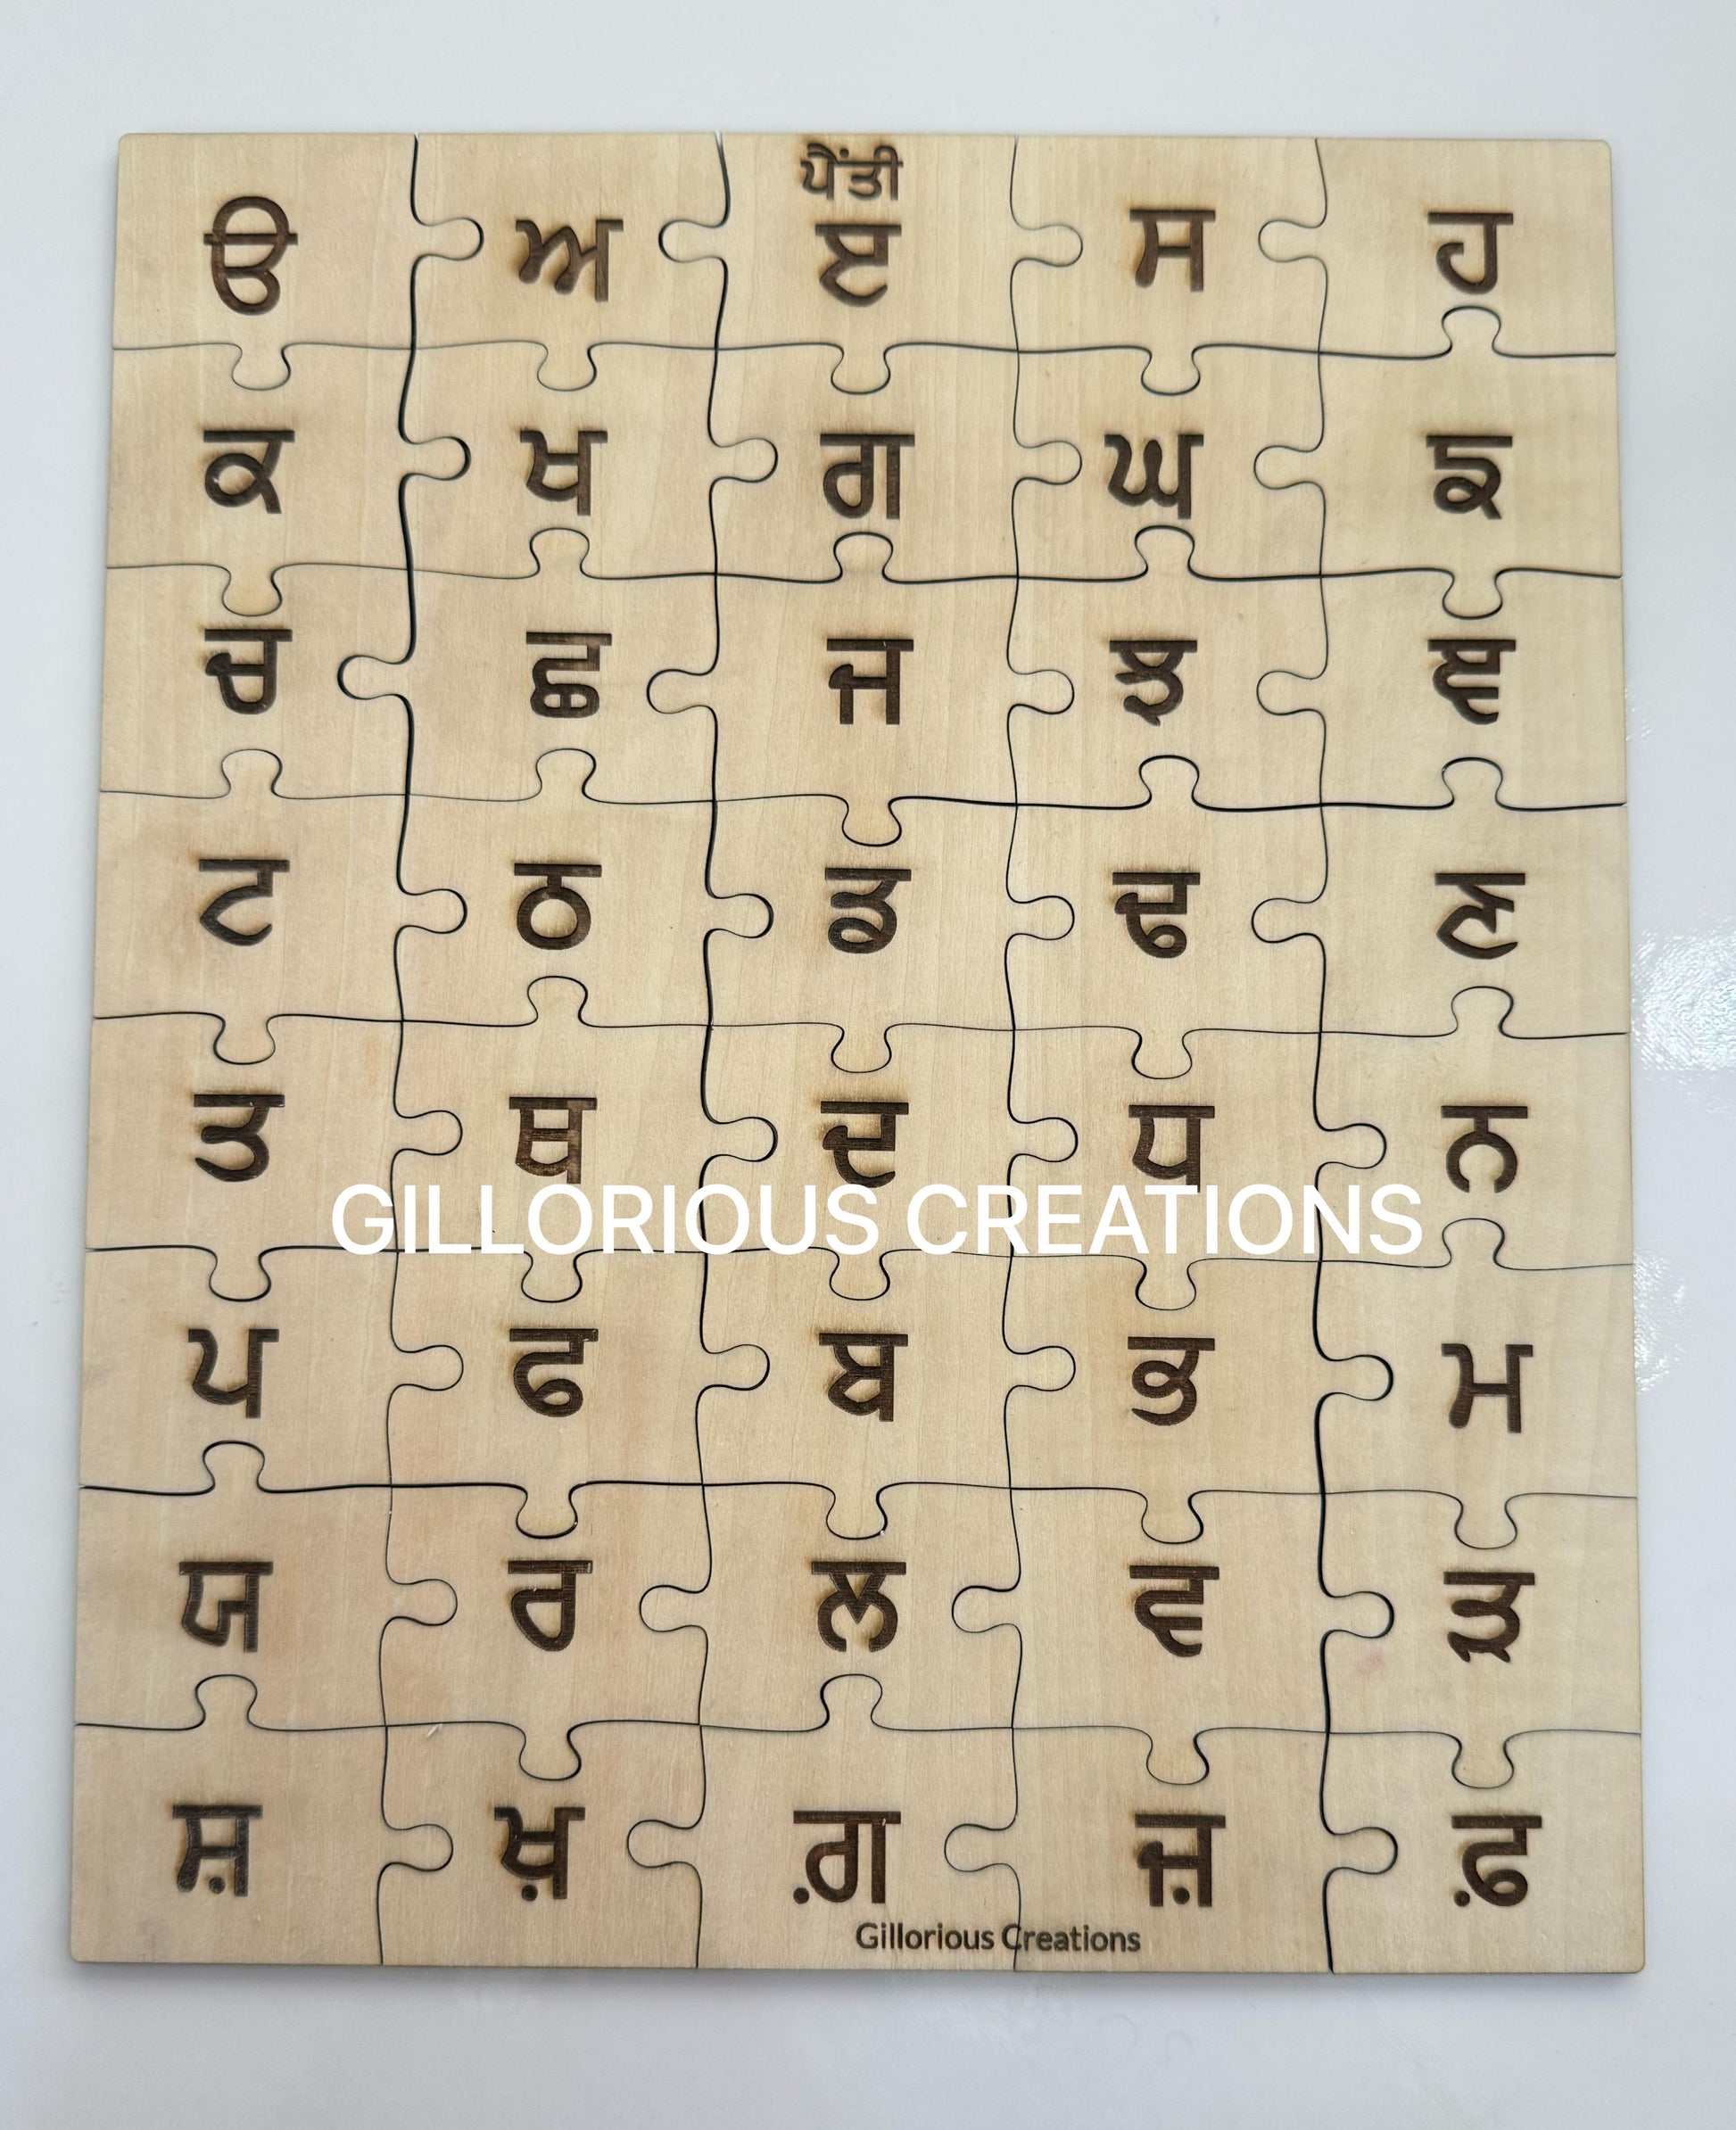 ਪੈਂਤੀ
ੳ ਅ ੲ ਸ ਹ
ਕ ਖ ਗ ਘ ਙ
ਚ ਛ ਜ ਝ ਞ
ਟ ਠ ਡ ਢ ਣ
ਤ ਥ ਦ ਧ ਨ
GILLORIOUS CREATIONS
ਪ ਫ ਬ ਭ ਮ
ਯ ਰ ਲ ਵ ੜ
ਸ਼ ਖ਼ ਗ਼ ਜ਼ ਫ਼
Gillorious Creations